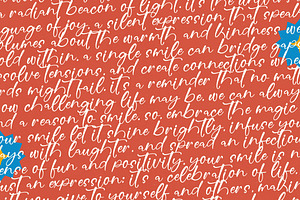 a radiant beacon of light, it's the universal
language of joy, a silent expression that speaks
volumes about the warmth and kindness we
hold within. a single smile can bridge gaps,
dissolve tensions, and create connections where
words might fail. it's a reminder that no matter
how challenging life may be, we can always
find a reason to smile. so, embrace the magic of
your smile, let it shine brightly, infuse your
days with laughter, and spread an infectious
sense of fun and positivity. your smile is not
just an expression; it's a celebration of life, a
gift you give to yourself and others, making